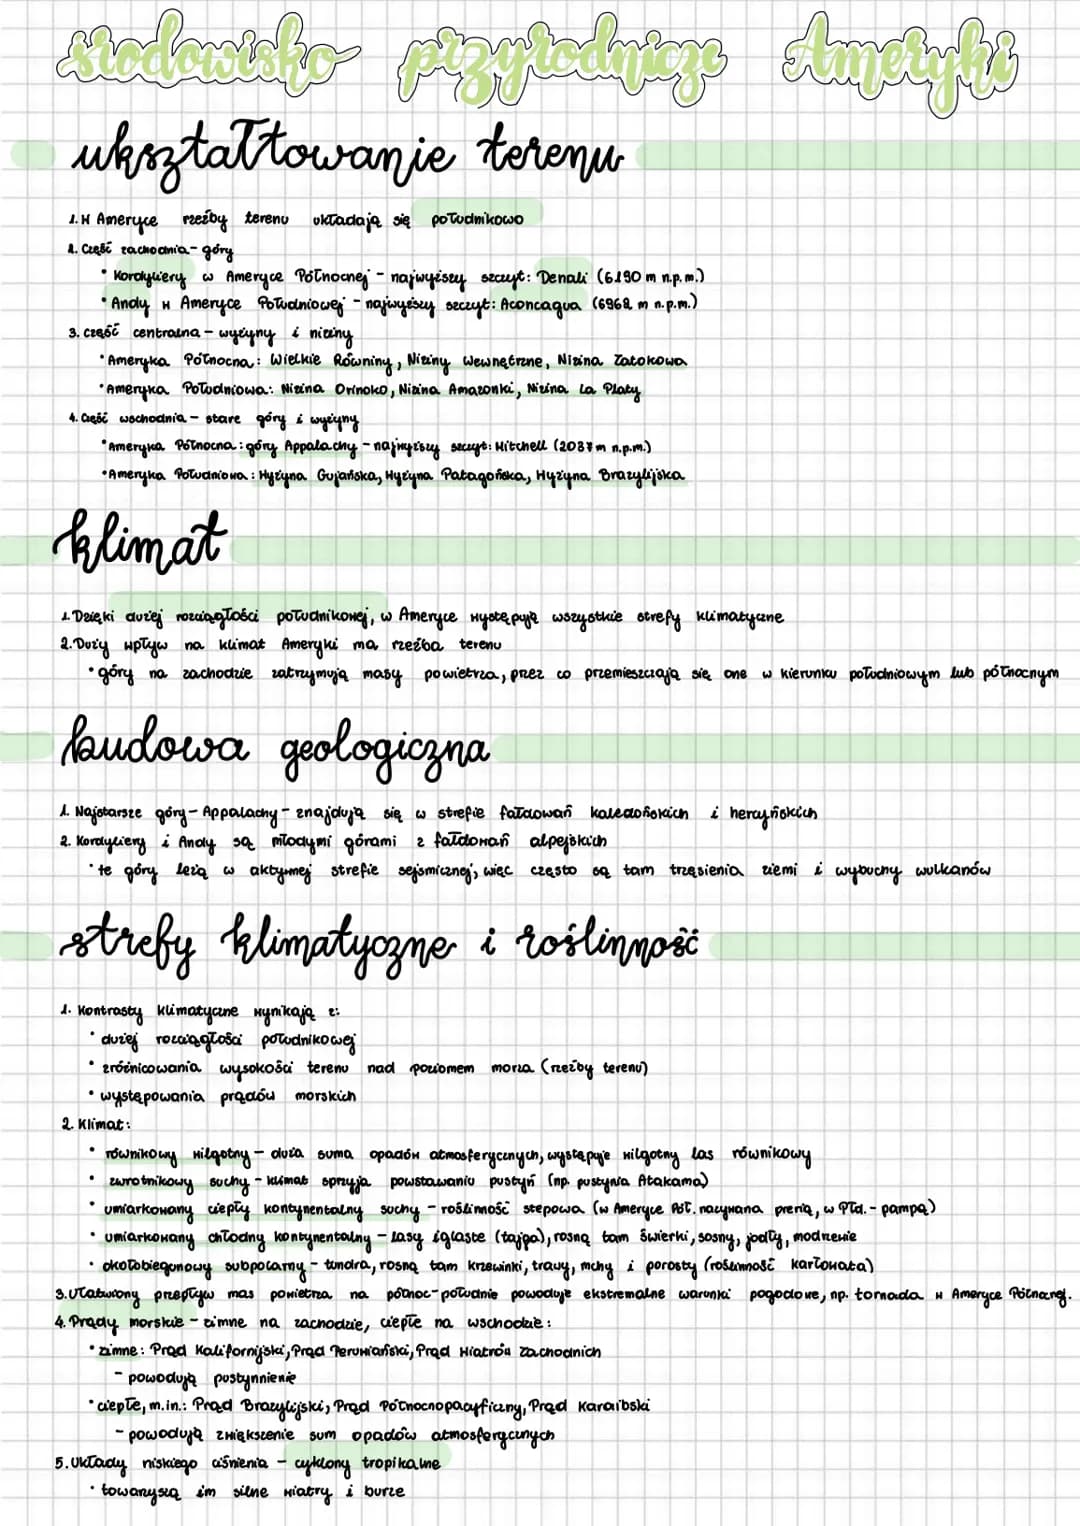 środowisko przyrodnicze Ameryki
ukształtowanie terenu
1. W Ameryce rzeźby terenu układają się południkowo
2. Część zachodnia - góry
• Kordyliery w Ameryce Północnej - najwyższy szczyt: Denali (6190 m n.p.m.)
• Andy w Ameryce Południowej - najwyższy szczyt: Aconcagua (6962 m n.p.m.)
3. część centralna - wyżyny i niziny
• Ameryka Północna: Wielkie Równiny, Niziny Wewnętrzne, Nizina Zatokowa
• Ameryka Południowa: Nizina Orinoko, Nizina Amazonki, Nizina La Platy
4. Część wschodnia - stare góry i wyżyny
• Ameryka Północna: góry Appalachy - najwyższy szczyt: Mitchell (2037 m n.p.m.)
• Ameryka Południowa: Wyżyna Gujańska, Wyżyna Patagońska, Wyżyna Brazylijska
klimat
1. Dzięki dużej rozciągłości południkowej, w Ameryce występują wszystkie strefy klimatyczne
2. Duży wpływ na klimat Ameryki ma rzeźba terenu
• góry na zachodzie zatrzymują masy powietrza, przez co przemieszczają się one w kierunku południowym lub północnym
budowa geologiczna
1. Najstarsze góry - Appalachy - znajdują się w strefie fałdowań kaledońskich i hercyńskich
2. Kordyliery i Andy są młodymi górami z fałdowań alpejskich
• te góry leżą w aktywnej strefie sejsmicznej, więc często są tam trzęsienia ziemi i wybuchy wulkanów
strefy klimatyczne i roślinność
1. Kontrasty klimatyczne wynikają z:
• dużej rozciągłości południkowej
• zróżnicowania wysokości terenu nad poziomem morza (rzeźby terenu)
• występowania prądów morskich
2. Klimat:
• równikowy wilgotny - duża suma opadów atmosferycznych, występuje wilgotny las równikowy
• zwrotnikowy suchy - klimat sprzyja powstawaniu pustyń (np. pustynia Atakama)
• umiarkowany ciepły kontynentalny suchy - roślinność stepowa (w Ameryce Płt. nazywana prerią, w Płd. - pampą)
• umiarkowany chłodny kontynentalny - lasy iglaste (tajga), rosną tam świerki, sosny, jodły, modrzewie
• okołobiegunowy subpolarny - tundra, rosną tam krzewinki, trawy, mchy i porosty (roślinność karłowata)
3. Ułatwiony przepływ mas powietrza na północ-południe powoduje ekstremalne warunki pogodowe, np. tornada w Ameryce Północnej.
4. Prądy morskie - zimne na zachodzie, ciepłe na wschodzie:
• zimne: Prąd Kalifornijski, Prąd Peruwiański, Prąd Wiatrów Zachodnich
- powodują pustynnienie
• ciepłe, m.in.: Prąd Brazylijski, Prąd Północnopacyficzny, Prąd Karaibski
- powodują zwiększenie sum opadów atmosferycznych
5. Układy niskiego ciśnienia - cyklony tropikalne
• towarzyszą im silne wiatry i burze